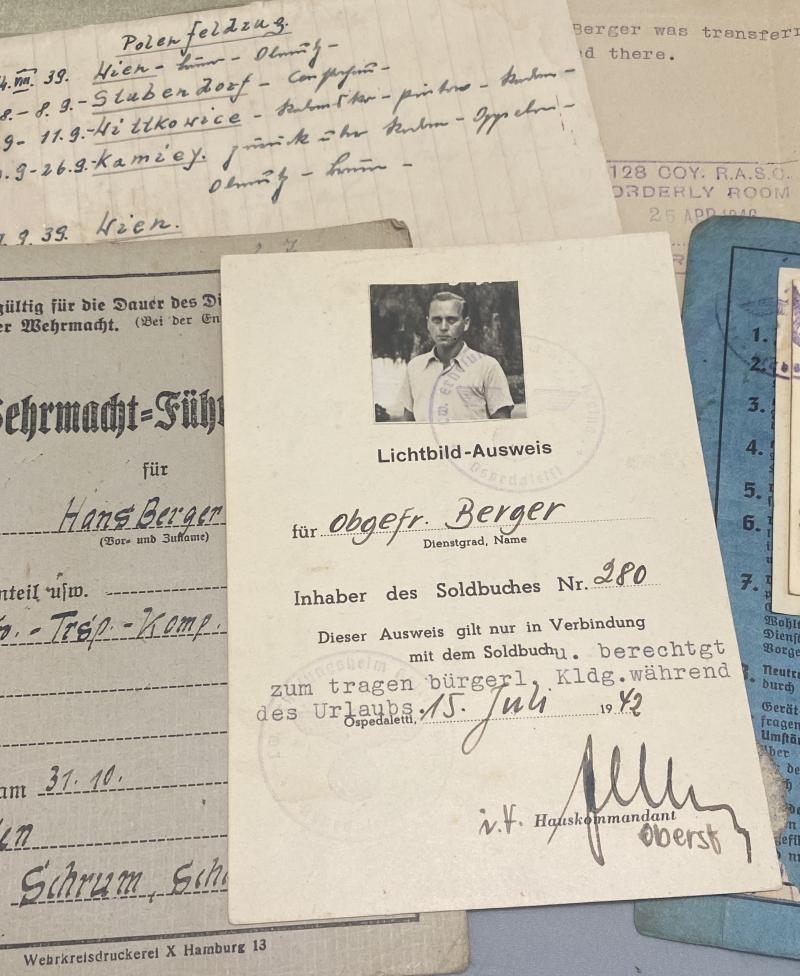 Polenfeldzug.
39. Wien - Olmütz -
8. - 8. 9. - Stubendorf -
9 - 11. 9. - Wittkowice -
9 - 26. 9. - Kamiey. zurück über
Olmütz -
9. 39. Wien.
Berger was transferr
d there.
128 COY. R.A.S.C.
ORDERLY ROOM
25 APR 1946
gültig für die Dauer des Di
er Wehrmacht. (Bei der En
Wehrmacht=Füh
für
Hans Berger
(Vor- und Zuname)
nteil usw.
- Trsp. - Komp.
am 31. 10.
Schrum, Sch
Wehrkreisdruckerei X Hamburg 13
Lichtbild-Ausweis
für Obgefr. Berger
Dienstgrad, Name
Inhaber des Soldbuches Nr. 280
Dieser Ausweis gilt nur in Verbindung
mit dem Soldbuch u. berechtgt
zum tragen bürgerl. Kldg. während
des Urlaubs.
Ospedaletti, 15. Juli 1942
i.V. Hauskommandant
Oberst
Ospedaletti
1.
2.
3.
4.
5.
6.
7.
Wohl
Dienst
Vorge
Neutra
durch
Gerät
fragen
Umstän